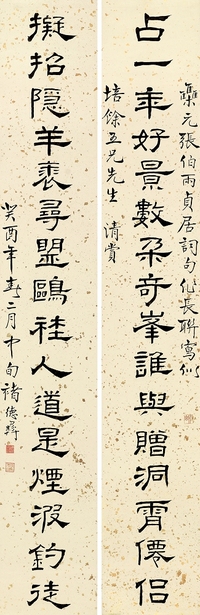 元張伯雨貞居詞句作長聯寫似
占一年好景數朵奇峯誰與贈洞霄僊侣
培餘五兄先生 清賞
擬招隱羊裘尋盟鷗社人道是煙波釣徒
癸酉年春二月中旬褚德彝